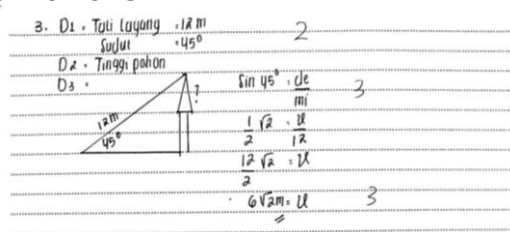 3. D1 : Tali layang : 12 m 2
Sudut : 45°
D2 : Tinggi pohon
D3 :
12m
45°
?
Sin 45° : de/mi 3
1/2 √2 : x/12
12/2 √2 : x
6√2 m : x 3